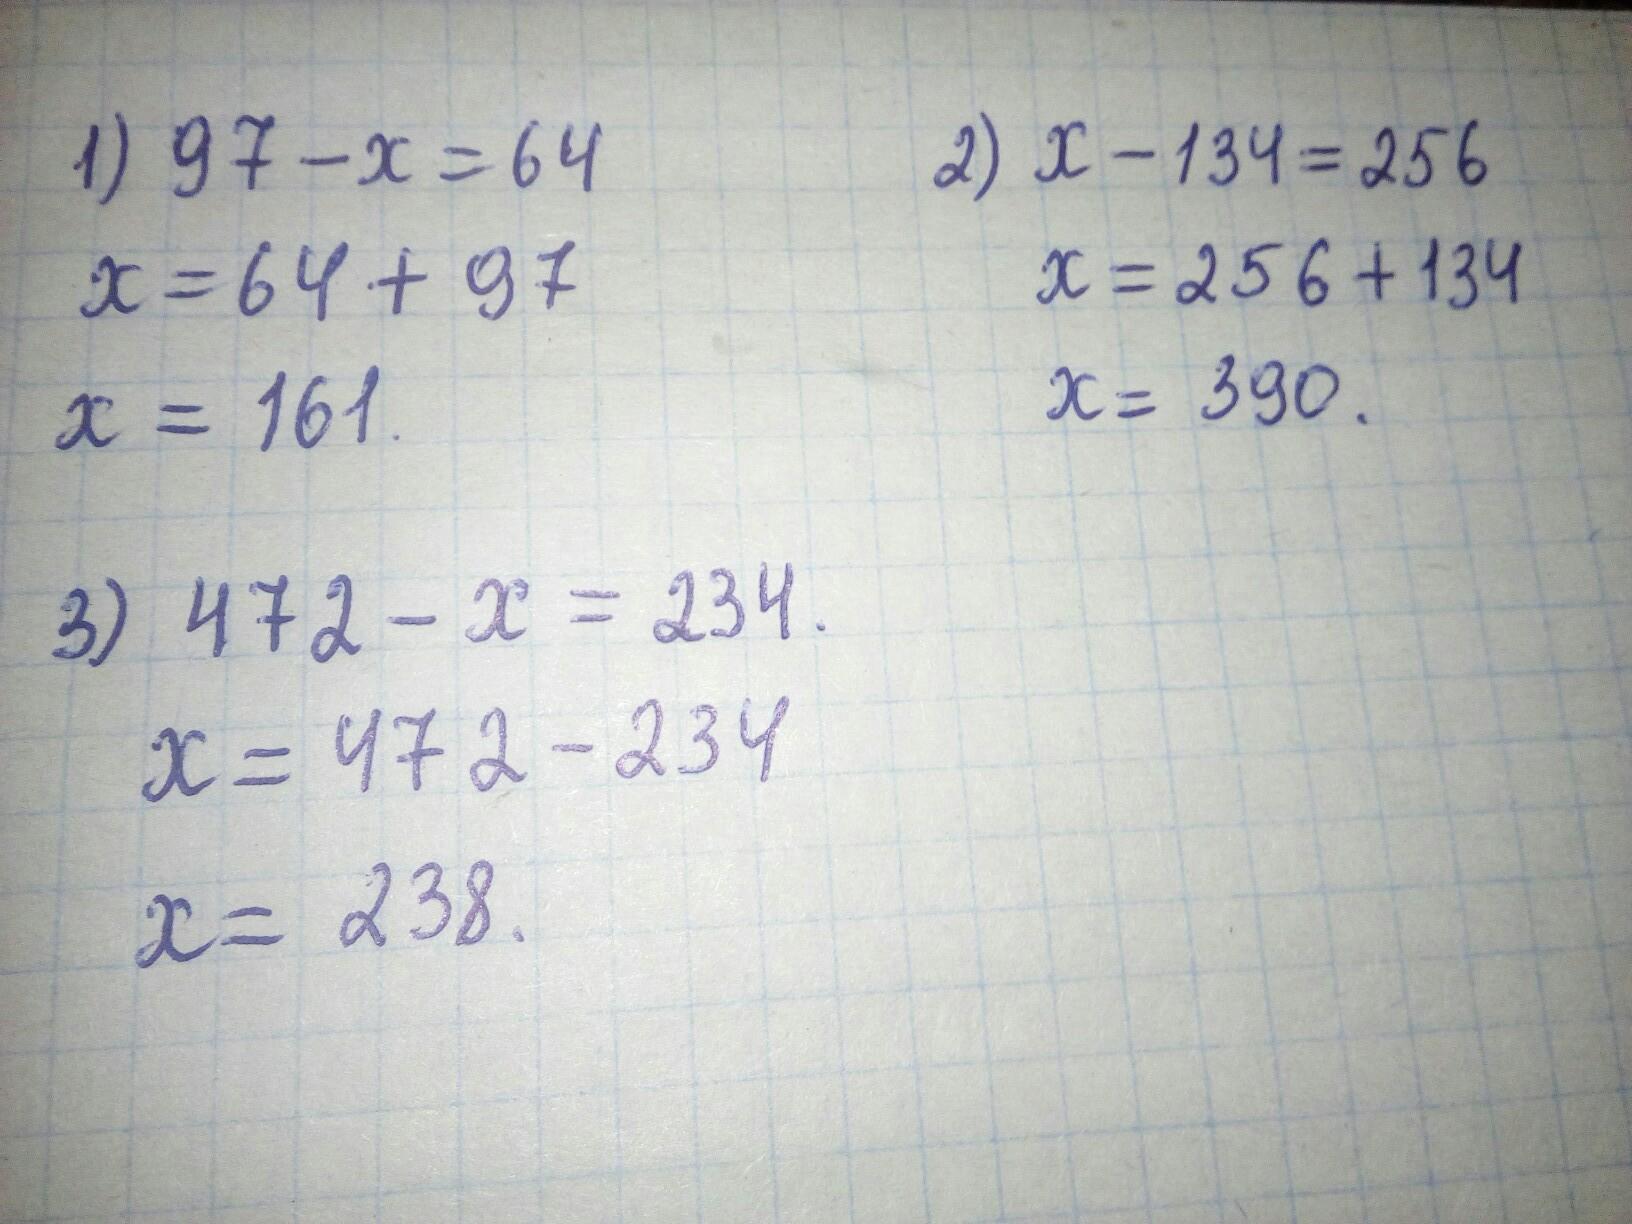 1) 97 - x = 64
x = 64 + 97
x = 161.
2) x - 134 = 256
x = 256 + 134
x = 390.
3) 472 - x = 234.
x = 472 - 234
x = 238.